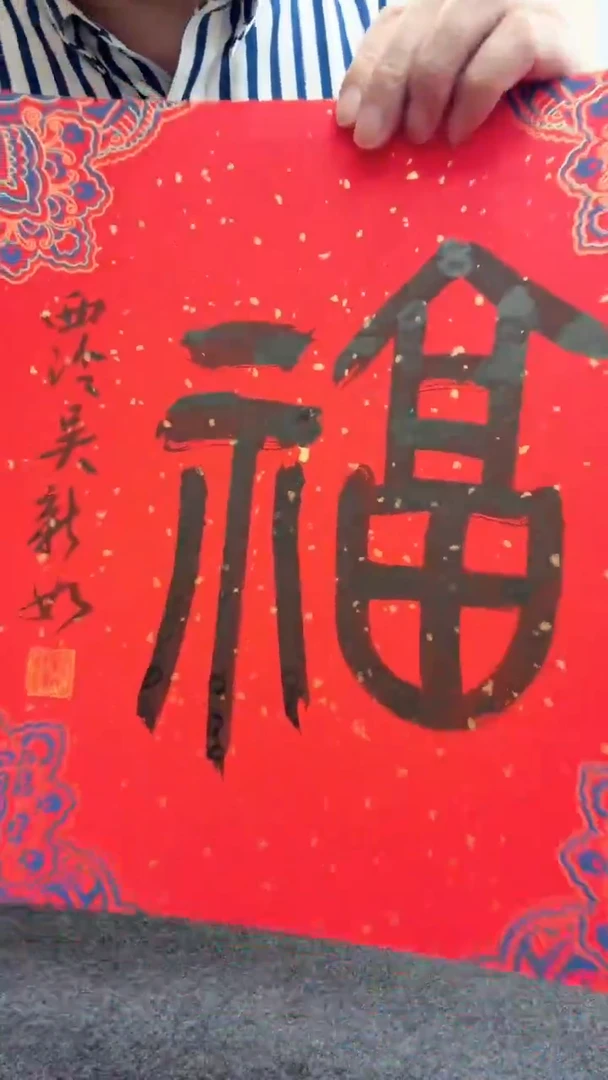 福
西泠吴新如